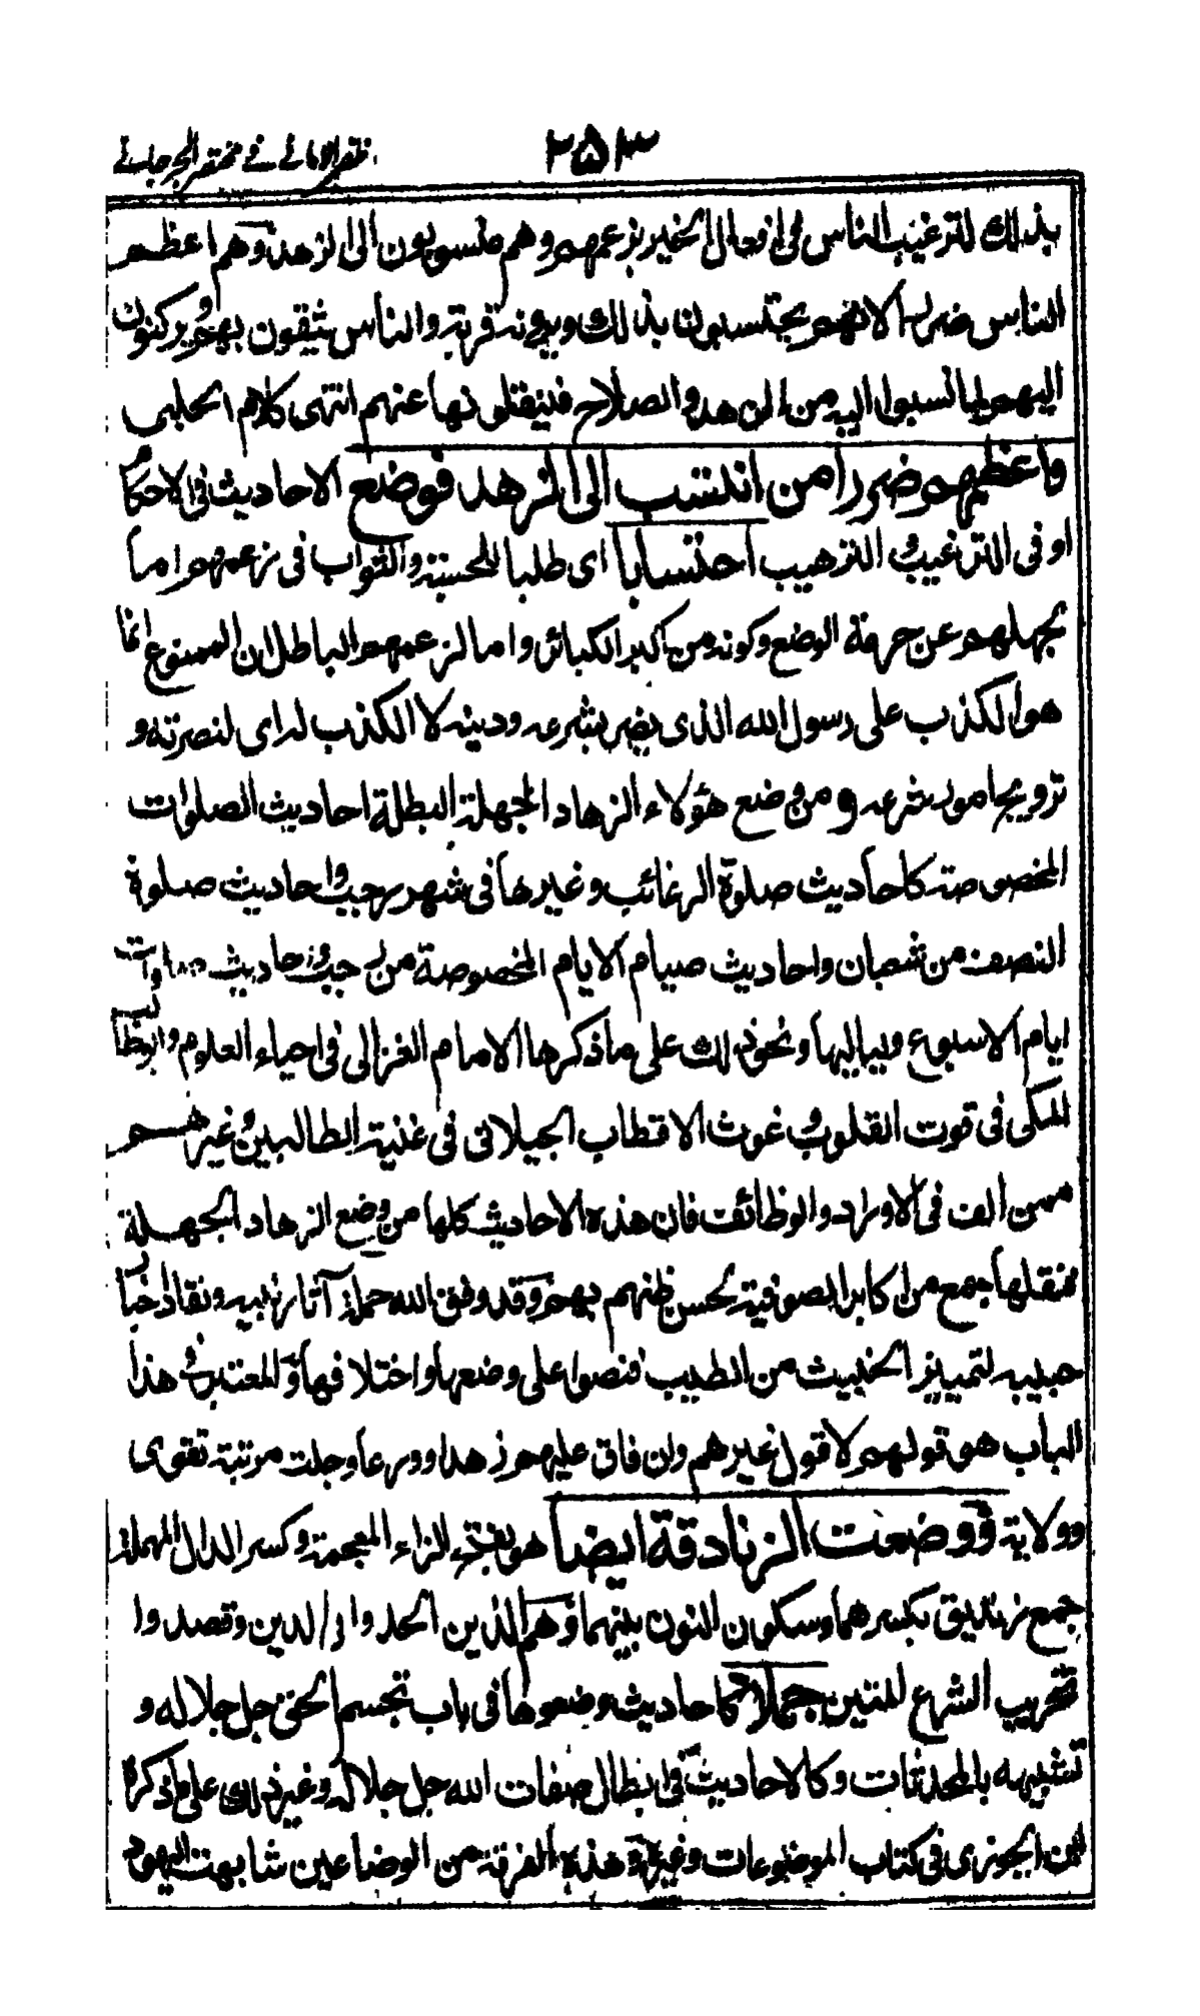 ظفر الامانے فے مختصر الجرجانے
۲۵۳
بذلك لترغيب الناس فى افعال الخير بزعمهم وهم منسوبون الى الزهد وهم اعظم
الناس ضررا لانهم يحتسبون بذلك ويرونه قربة والناس يثقون بهم ويركنون
اليهم لما نسبوا اليه من الزهد والصلاح فينقلونها عنهم انتهى كلام الحلبى
واعظمهم ضررا من انتسب الى الزهد فوضع الاحاديث فى الاحكام
او فى الترغيب والترهيب احتسابا اى طلبا للحسنة والثواب فى زعمهم اما
لجهلهم عن حرمة الوضع وكونه من اكبر الكبائر واما لزعمهم الباطل ان الممنوع انما
هو الكذب على رسول الله الذى يضر بشرعه ودينه لا الكذب له اى لنصرته و
ترويجا مور شرعه ومن وضع هؤلاء الزهاد الجهلة البطلة احاديث الصلوات
المخصوصة كاحاديث صلوة الرغائب وغيرها فى شهر رجب واحاديث صلوة
النصف من شعبان واحاديث صيام الايام المخصوصة من رجب واحاديث صلوات
ايام الاسبوع ولياليها ونحو ذلك على ما ذكرها الامام الغزالى فى احياء العلوم وابوطالب
المكى فى قوت القلوب وغوث الاقطاب الجيلانى فى غنية الطالبين وغيرهم
ممن الف فى الاوراد والوظائف فان هذه الاحاديث كلها من وضع الزهاد الجهلة
فنقلها جمع من اكابر الصوفية لحسن ظنهم بهم وقد وفق الله حملة آثار نبيه ونقاد اخبار
حبيبه لتمييز الخبيث من الطيب فنصوا على وضعها واختلافها والمعتبر فى هذا
الباب هو قولهم لا قول غيرهم وان فاق عليهم زهدا وورعا وجلت مرتبة تقوى
وولاية ووضعت الزنادقة ايضا هو بفتح الزاء المعجمة وكسر الدال المهملة
جمع زنديق بكسرهما وسكون النون بينهما وهم الذين الحدوا فى الدين وقصدوا
تخريب الشرع المتين جملا كاحاديث وضعوها فى باب تجسم الحق جل جلاله و
تشبيهه بالمحدثات وكالاحاديث فى ابطال صفات الله جل جلاله وغير ذلك على ما ذكره
ابن الجوزى فى كتاب الموضوعات وغيره هذه الفرقة من الوضاعين شابهت اليهود